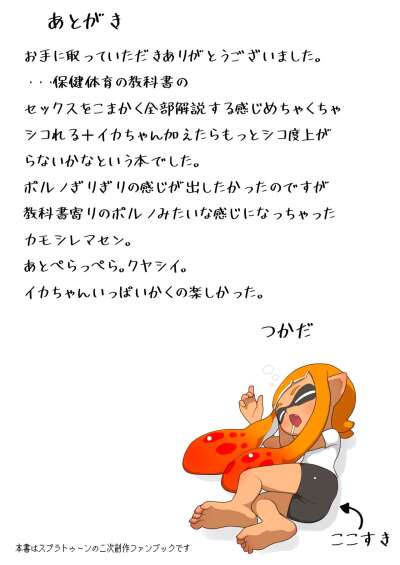 あとがき
お手に取っていただきありがとうございました。
・・・保健体育の教科書の
セックスをこまかく全部解説する感じめちゃくちゃ
シコれる＋イカちゃん加えたらもっとシコ度上が
らないかなという本でした。
ポルノぎりぎりの感じが出したかったのですが
教科書寄りのポルノみたいな感じになっちゃった
カモシレマセン。
あとぺらっぺら。クヤシイ。
イカちゃんいっぱいかくの楽しかった。
つかだ
ここすき
本書はスプラトゥ～ンの二次創作ファンブックです